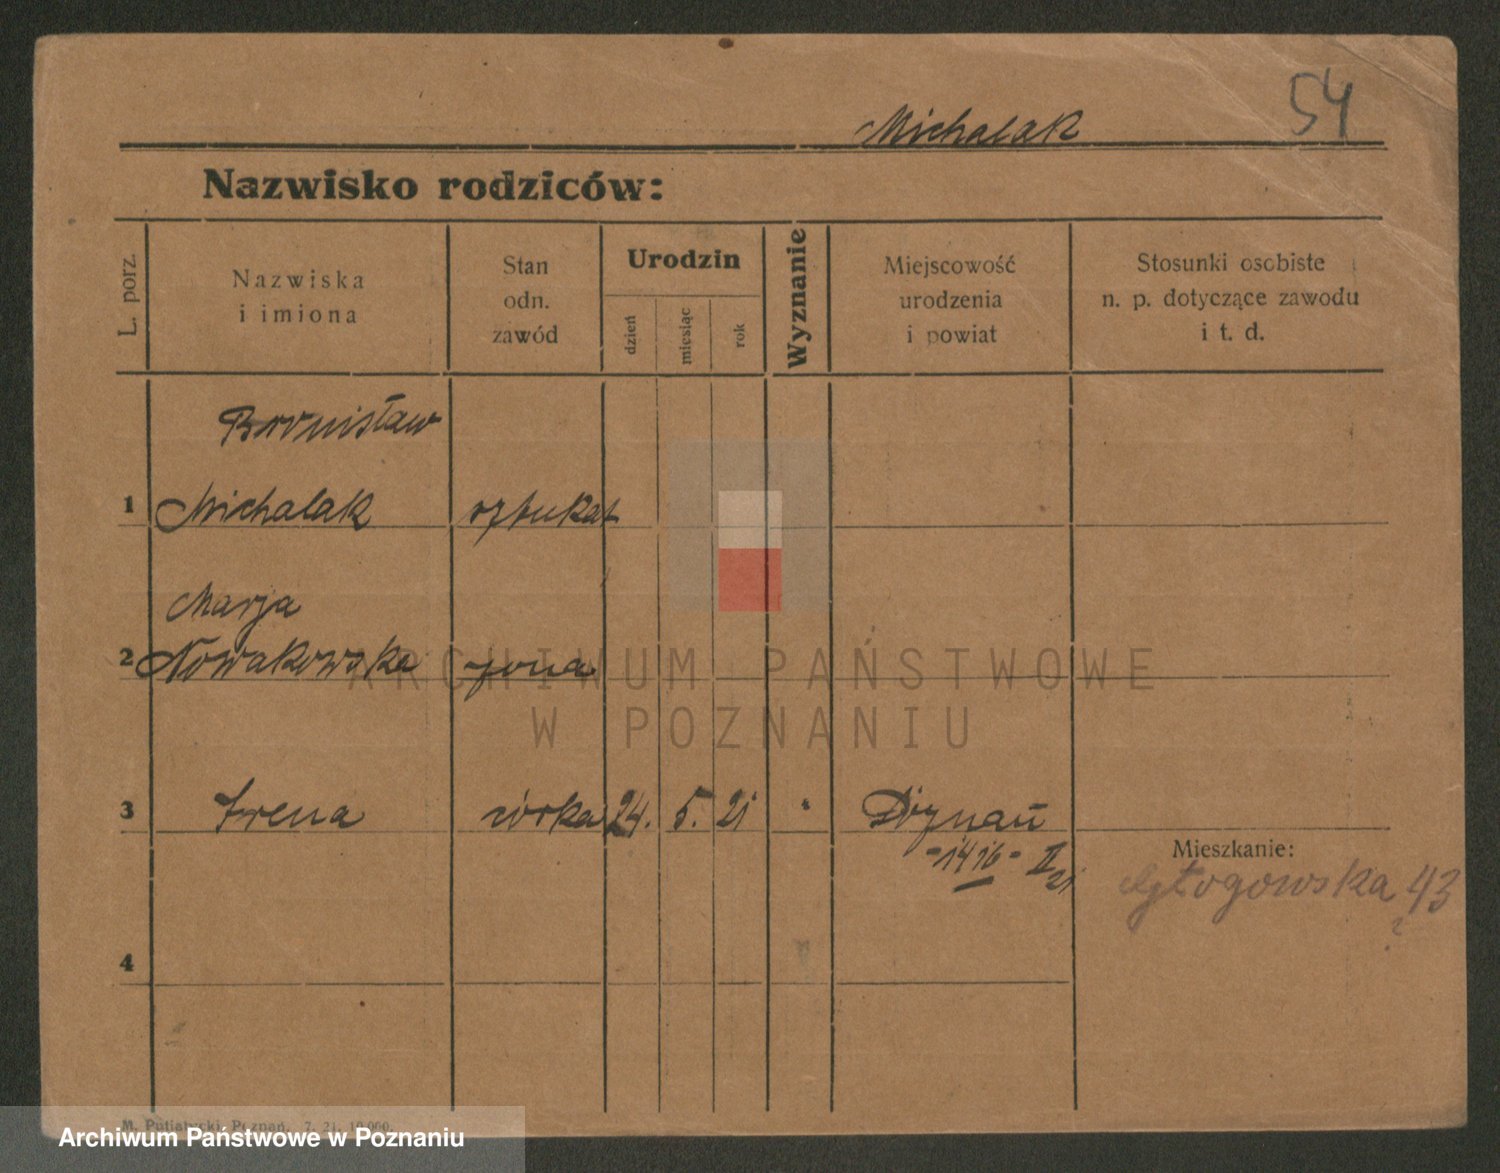 54
Michalak
Nazwisko rodziców:
L. porz.
Nazwiska
i imiona
Stan
odn.
zawód
Urodzin
dzień
miesiąc
rok
Wyznanie
Miejscowość
urodzenia
i powiat
Stosunki osobiste
n. p. dotyczące zawodu
i t. d.
Bronisław
1 Michalak sztukat
Marja
2 Nowakowska żona
ARCHIWUM PAŃSTWOWE
W POZNANIU
3 Irena córka 24. 5. 21 Poznań
-1416- II 21
Mieszkanie:
Głogowska 43
4
M. Putiatycki, Poznań. 7. 21. 10.000.
Archiwum Państwowe w Poznaniu